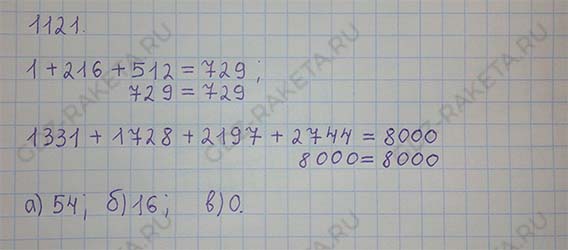 1121.
1 + 216 + 512 = 729 ;
729 = 729
1331 + 1728 + 2197 + 2744 = 8000
8000 = 8000
а) 54; б) 16; в) 0.
GDZ-RAKETA.RU
GDZ-RAKETA.RU
GDZ-RAKETA.RU